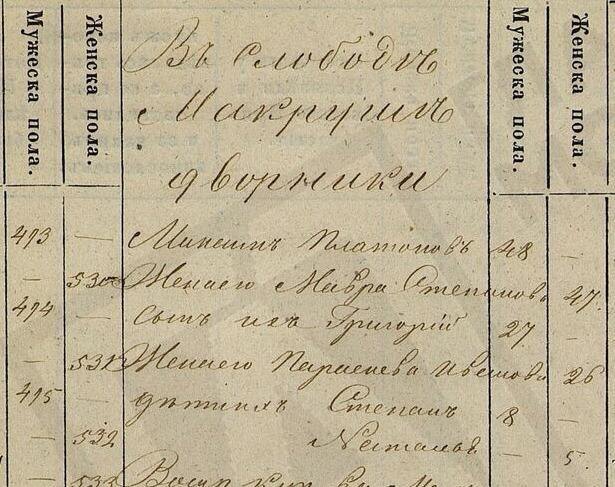 Мужеска пола. Женска пола. Мужеска пола. Женска пола.
Въ слободѣ
дворники
493 — Платоновъ 48 —
— 530 Жена его Мавра Степанова — 47.
494 — сынъ ихъ Григорій 27 —
— 531 Жена его Ивановна — 26
495 — дѣти ихъ Степанъ 8 —
— 532 Наталья — 5.
533